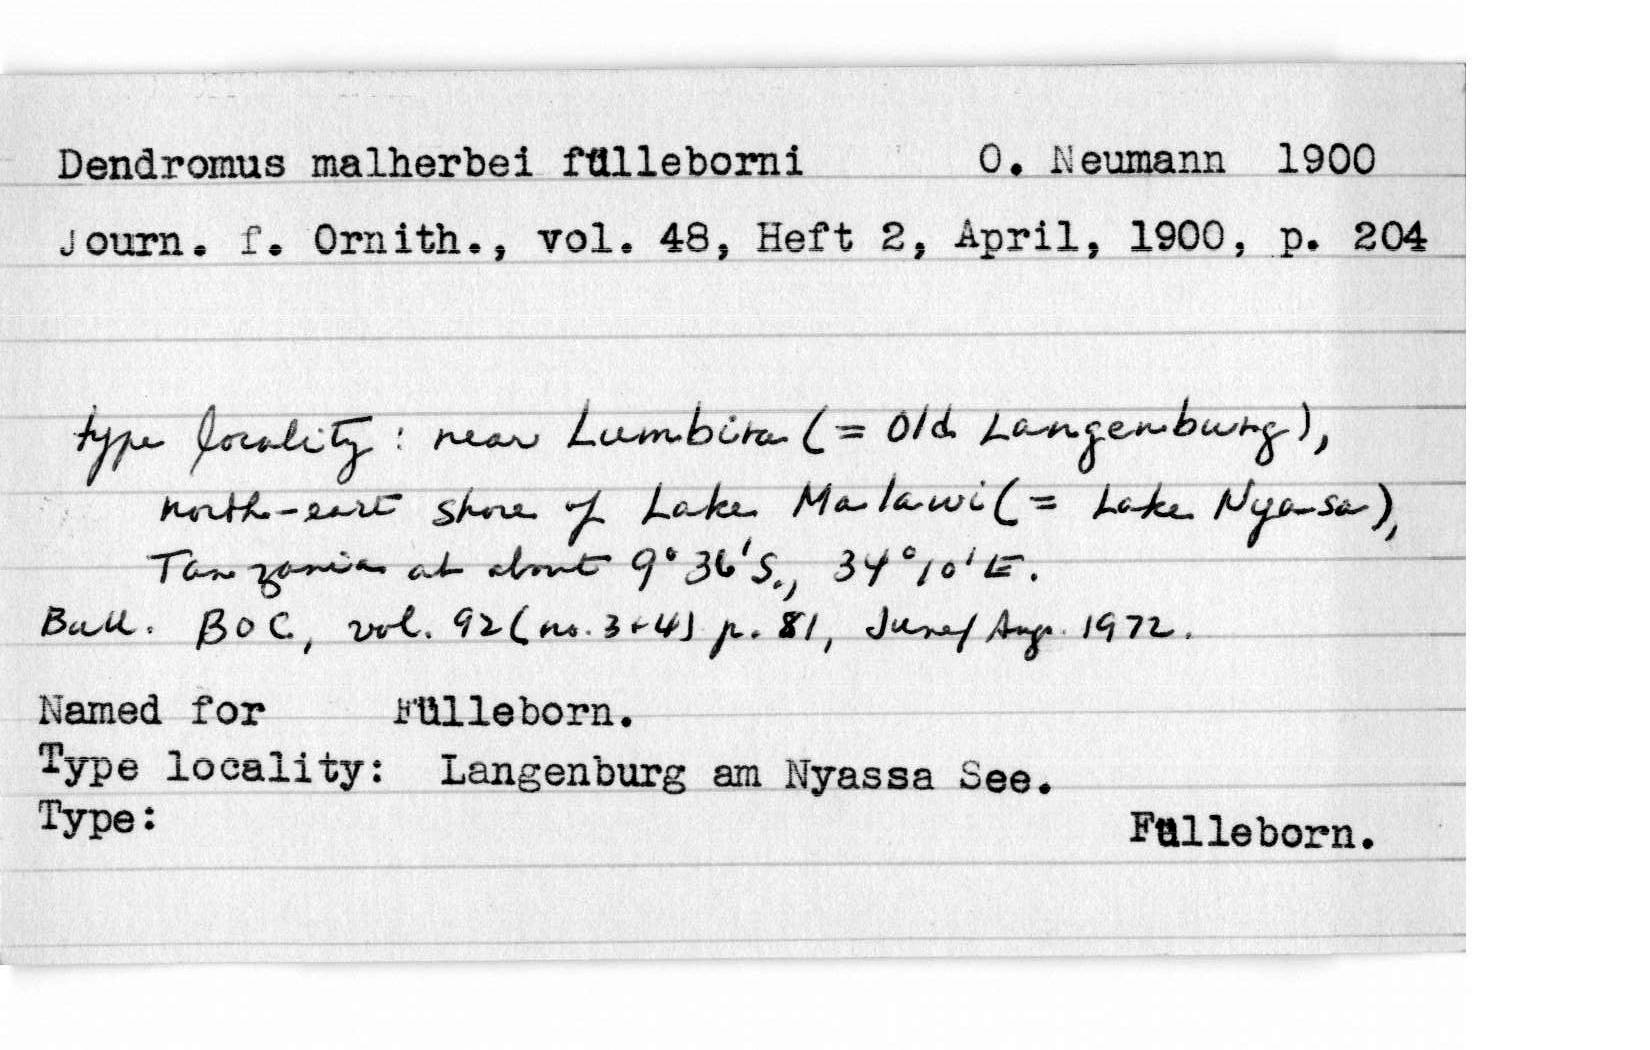 Dendromus malherbei fülleborni O. Neumann 1900
Journ. f. Ornith., vol. 48, Heft 2, April, 1900, p. 204
type locality: near Lumbira (= Old Langenburg),
north-east shore of Lake Malawi (= Lake Nyasa),
Tanzania at about 9°36'S., 34°10'E.
Bull. BOC, vol. 92 (no. 3+4) p. 81, June/Aug. 1972.
Named for Fülleborn.
Type locality: Langenburg am Nyassa See.
Type:
Fülleborn.